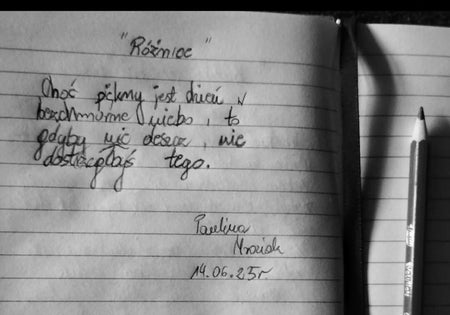 "Różnice"
Choć piękny jest dzień w
bezchmurne niebo, to
gdyby nie deszcz, nie
dostrzegłbyś tego.
Paulina
Mroziak
14.06.25r.